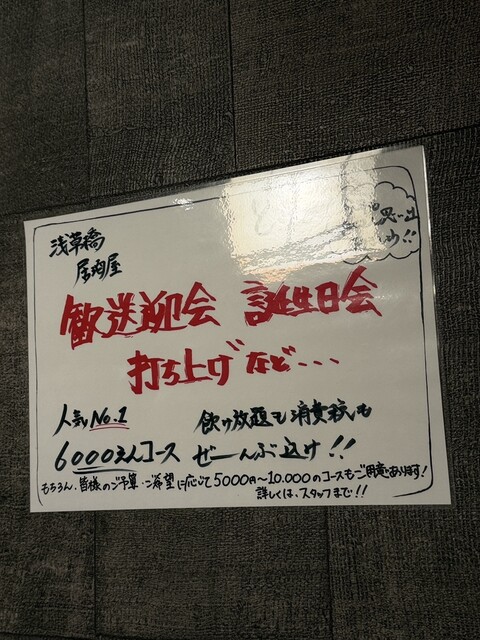 浅草橋
居肉屋
歓送迎会 誕生日会
打ち上げなど...
人気No.1
飲み放題も消費税も
6000えんコース ぜーんぶ込み!!
もちろん、皆様のご予算・ご希望に応じて5000円〜10.000のコースもご用意あります!
詳しくは、スタッフまで!!